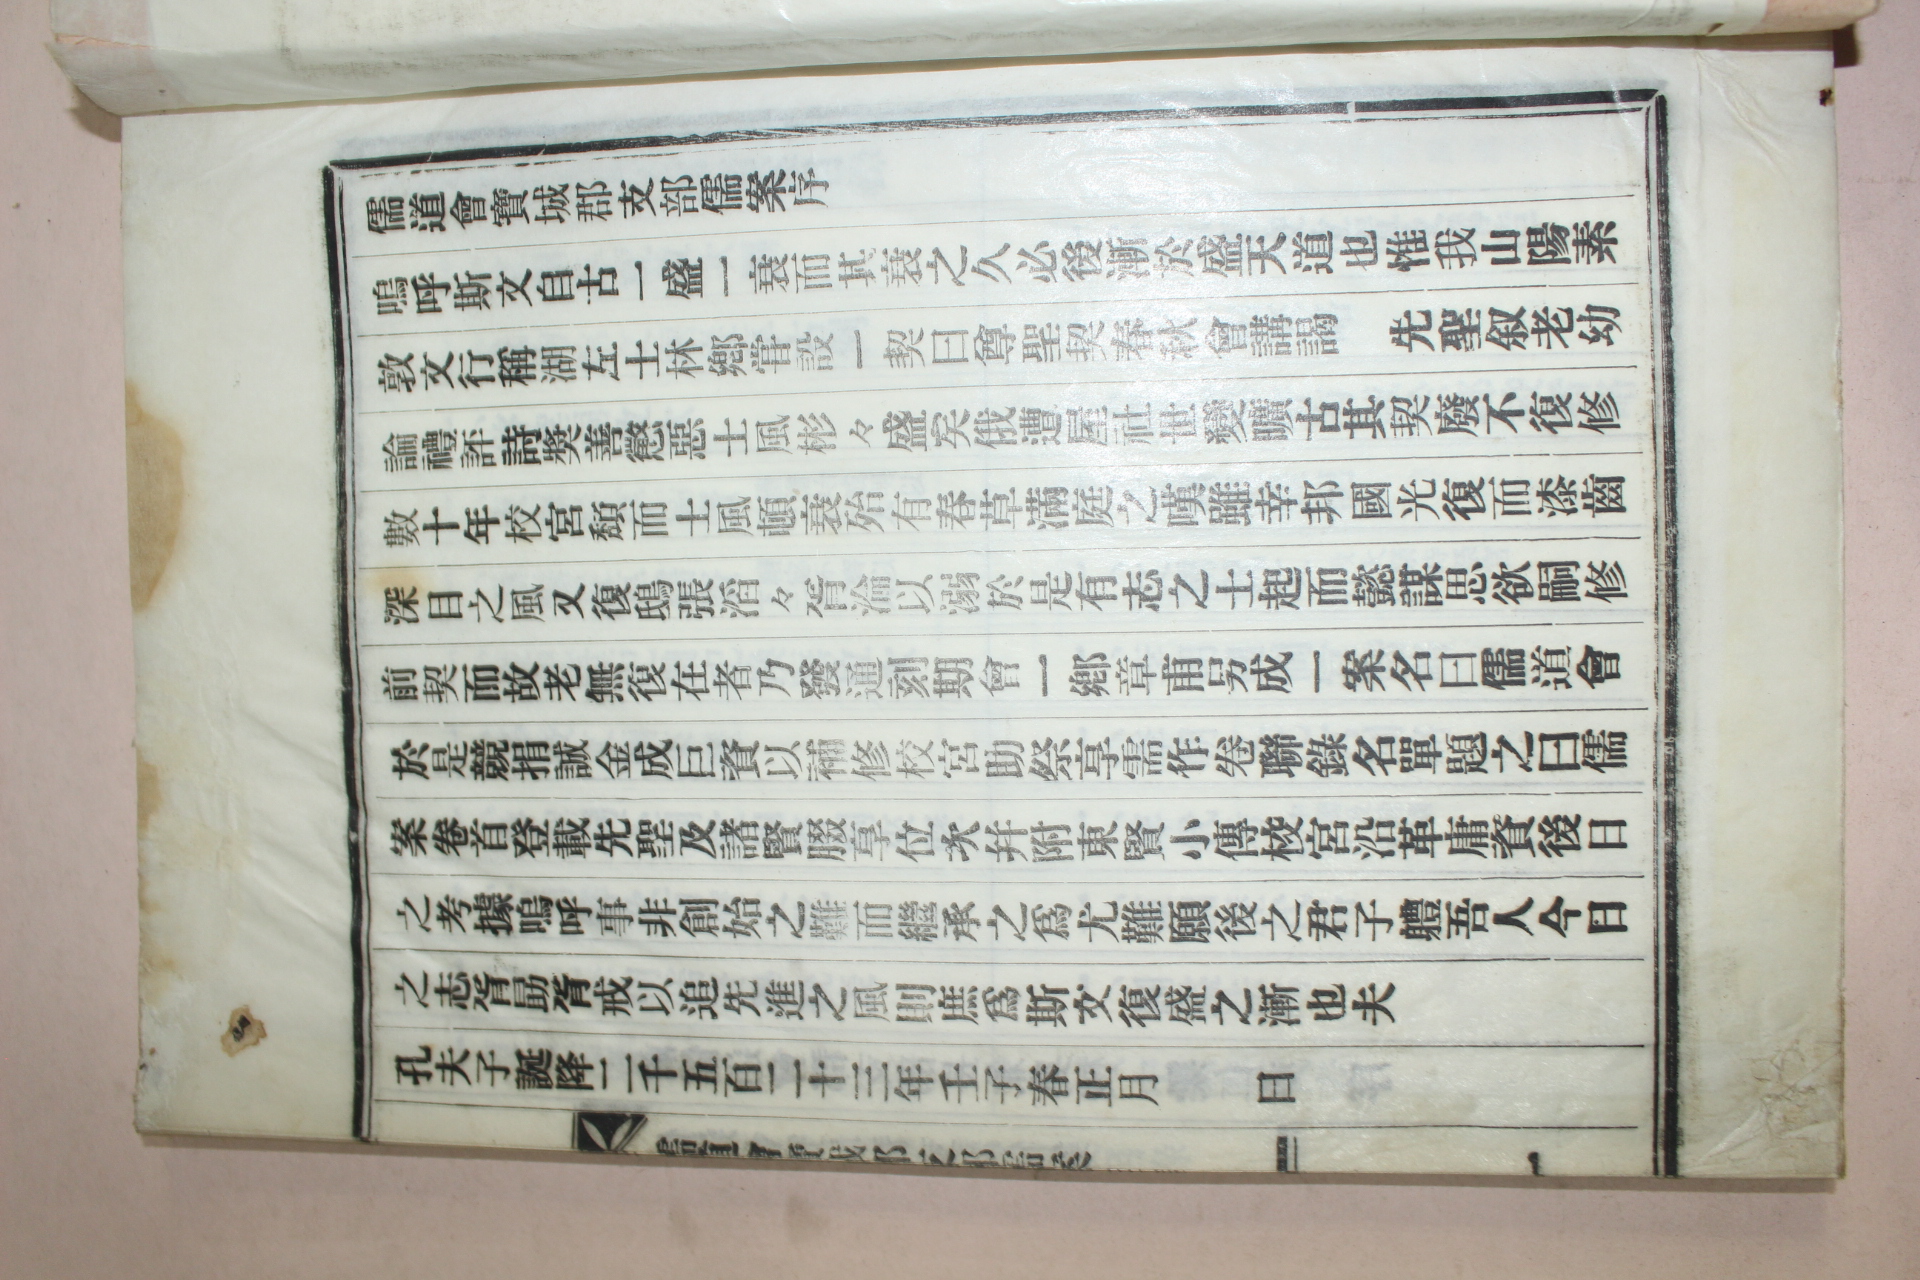 儒道會寶城郡支部儒案序
嗚呼斯文自古一盛一衰而其衰之久必後漸於盛天道也惟我山陽素
敦文行稱湖左士林鄉嘗設一契曰尊聖契春秋會講謁先聖叙老幼
論禮評詩奬善懲惡士風彬々盛矣俄遭屋社世變曠古其契廢不復修
數十年校宮頹而士風頓衰殆有春草滿庭之嘆雖幸邦國光復而漆齒
深目之風又復鴟張滔々胥淪以溺於是有志之士起而懿謀思欲嗣修
前契而故老無復在者乃發通刻期會一鄉章甫另成一案名曰儒道會
於是競捐誠金成巨資以補修校宮助祭享需作卷聯錄名單題之曰儒
案卷首登載先聖及諸賢腏享位次幷附東賢小傳校宮沿革庸資後日
之考據嗚呼事非創始之難而繼承之爲尤難願後之君子體吾人今日
之志胥勖胥戒以追先進之風則庶爲斯文復盛之漸也夫
孔夫子誕降二千五百二十三年壬子春正月 日
儒道會寶城郡支部儒案